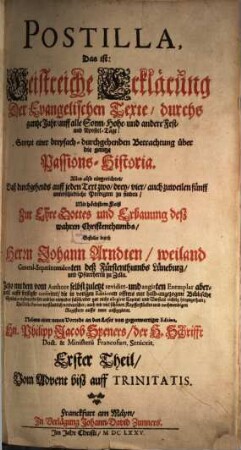 POSTILLA,
Das ist:
Geistreiche Erklärung
Der Evangelischen Texte / durchs
gantze Jahr / auff alle Sonn- Hohe und andere Fest-
und Apostel-Tage;
Sampt einer dreyfach-durchgehenden Betrachtung über
die gantze
Passions-Historia.
Alles also eingerichtet /
Daß durchgehends auff jeden Text zwo / drey / vier / auch zuweilen fünff
unterschiedliche Predigten zu finden;
Mit höchstem Fleiß
Zur Ehre Gottes und Erbauung deß
wahren Christenthumbs /
Gestellt durch
Herrn Johann Arndten / weiland
General-Superintendenten deß Fürstenthumbs Lüneburg /
und Pfarrherrn zu Zella.
Jetzo aus dem vom Authore selbst zuletzt revidirt- und augirten Exemplar
Nebens einer neuen Vorrede an den Leser von gegenwertiger Edition,
Hn. Philipp Jacob Speners / der H. Schrifft
Doct. & Ministerii Francofurt. Senioris.
Erster Theil /
Vom Advent biß auff TRINITATIS.
Franckfurt am Mäyn /
In Verlägung Johann David Zunners.
Im Jahr Christi / M DC LXXV.